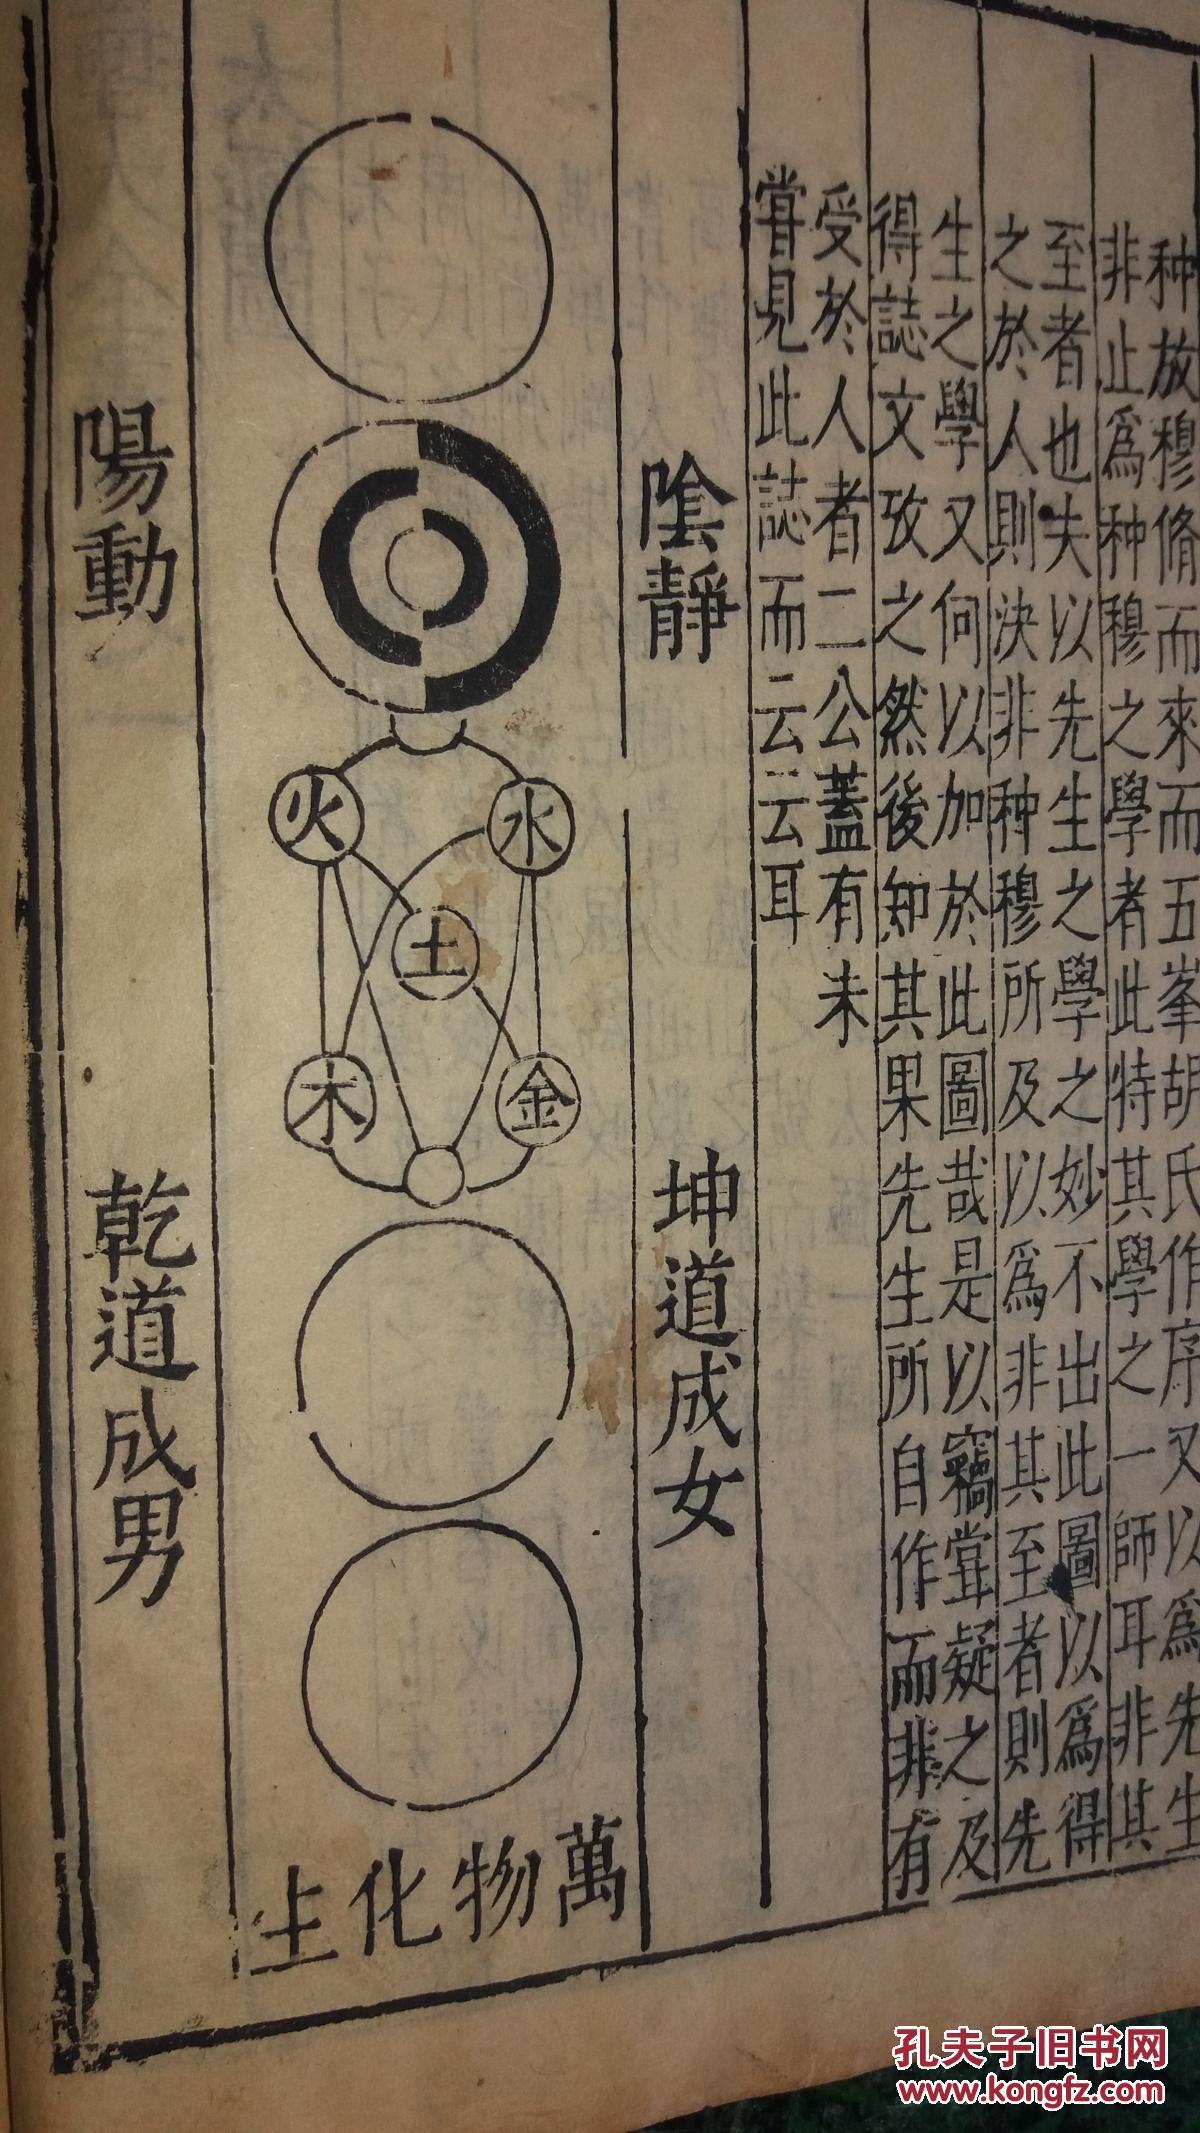 种放穆脩而來而五峯胡氏作序又以爲先生
非止爲种穆之學者此特其學之一師耳非其
至者也夫以先生之學之妙不出此圖以爲得
之於人則決非种穆所及以爲非其至者則先
生之學又何以加於此圖哉是以竊甞疑之及
得誌文攷之然後知其果先生所自作而非有
受於人者二公蓋有未
甞見此誌而云云耳
陰靜
坤道成女
火
水
土
木
金
萬物化生
陽動
乾道成男
孔夫子旧书网
www.kongfz.com